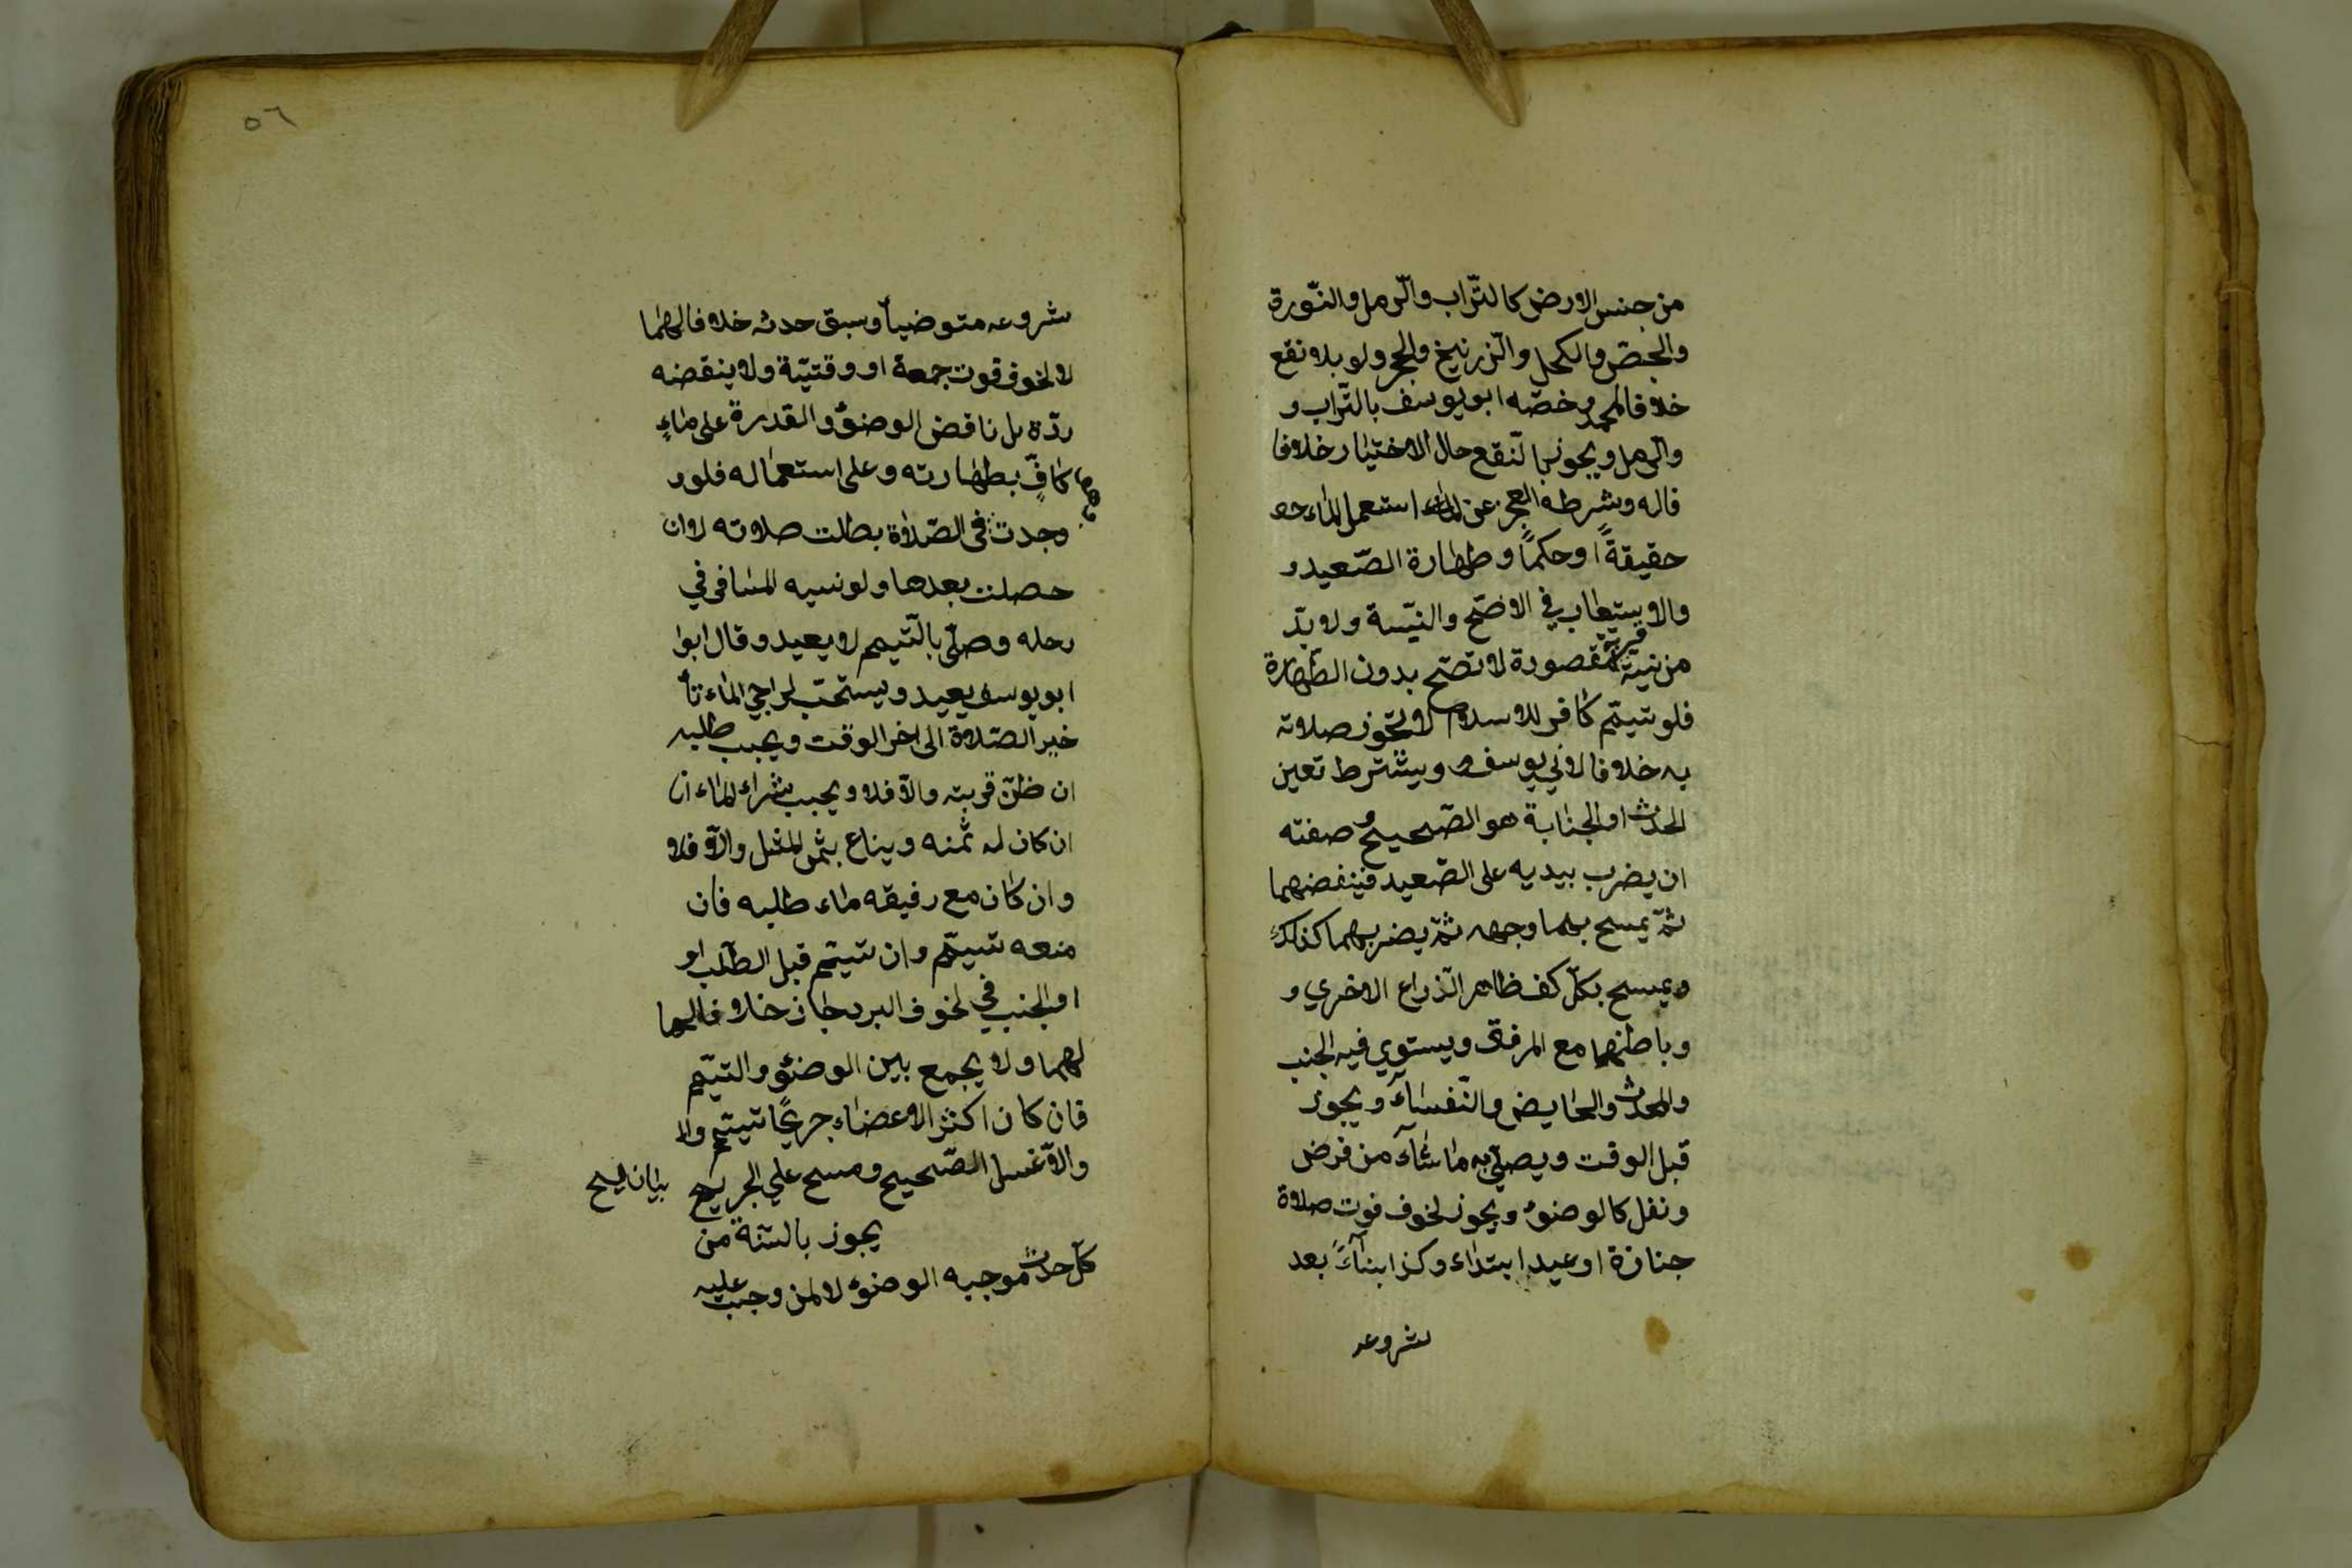 من جنس الارض كالتّراب والرّمل والنّورة
والجصّ والكحل والزّرنيخ والحجر ولو بلا نقع
خلافا لمحمد وخصّه ابو يوسف بالتّراب و
والرّمل ويجوز بالنّقع حال الاختيار خلافا
فاله وشرطه العجز عن استعمل الماء حو
حقيقةً او حكماً وطهارة الصّعيد و
والاستيعاب في الاصّح والنيّسة ولا بدّ
من نيّة قربة مقصودة لا تصّح بدون الطّهارة
فلو تيمّم كافر للاسلام لا تجوز صلاته
به خلافا لابي يوسف ويشترط تعين
الحدث او الجنابة هو الصّحيح و صفته
ان يضرب بيديه على الصّعيد فينفضهما
ثمّ يمسح بهما وجهه ثمّ يضربهما كذلك
ويمسح بكلّ كف ظاهر الذّراع الاخري و
وباطنهما مع المرفق ويستوي فيه الجنب
والمحدث والحايض والنّفسآء ويجوز
قبل الوقت ويصلّي به ما شآء من فرض
ونفل كالوضوء ويجوز لخوف فوت صلاة
جنازة او عيد ابتداء وكذا بنآءً بعد
شروعه
٥٦
شروعه متوضياً وسبق حدثه خلافا لهما
لا لخوف فوت جمعة او وقتيّة ولا ينقضه
ردّة بل ناقض الوضوء والقدرة على ماءٍ
كافٍ بطهارته وعلى استعماله فلو و
وجدت في الصّلاة بطلت صلاته لا ان
حصلت بعدها ولو نسيه المسافر في
رحله وصلّى بالتّيمم لا يعيد وقال ابوا
ابو يوسف يعيد ويستحبّ لراجي الماء تأ
خير الصّلاة الى اخر الوقت ويجب طلبه
ان ظنّ قربته والّا فلا ويجب شراء الماء ان
ان كان له ثمنه ويباع بثمن المثل والّا فلا
وان كان مع رفيقه ماء طلبه فان
منعه تيمّم وان تيمّم قبل الطّلب او
او الجنب في لخوف البرد جاز خلافا لهما
لهما ولا يجمع بين الوضوء والتيمّم
فان كان اكثر الاعضاء جريحًا تيمّم والا
والّا غسل الصّحيح ومسح علي الجريح
بيان المسح
يجوز بالسّنة من
كلّ حدث موجبه الوضوء لا لمن وجب عليه